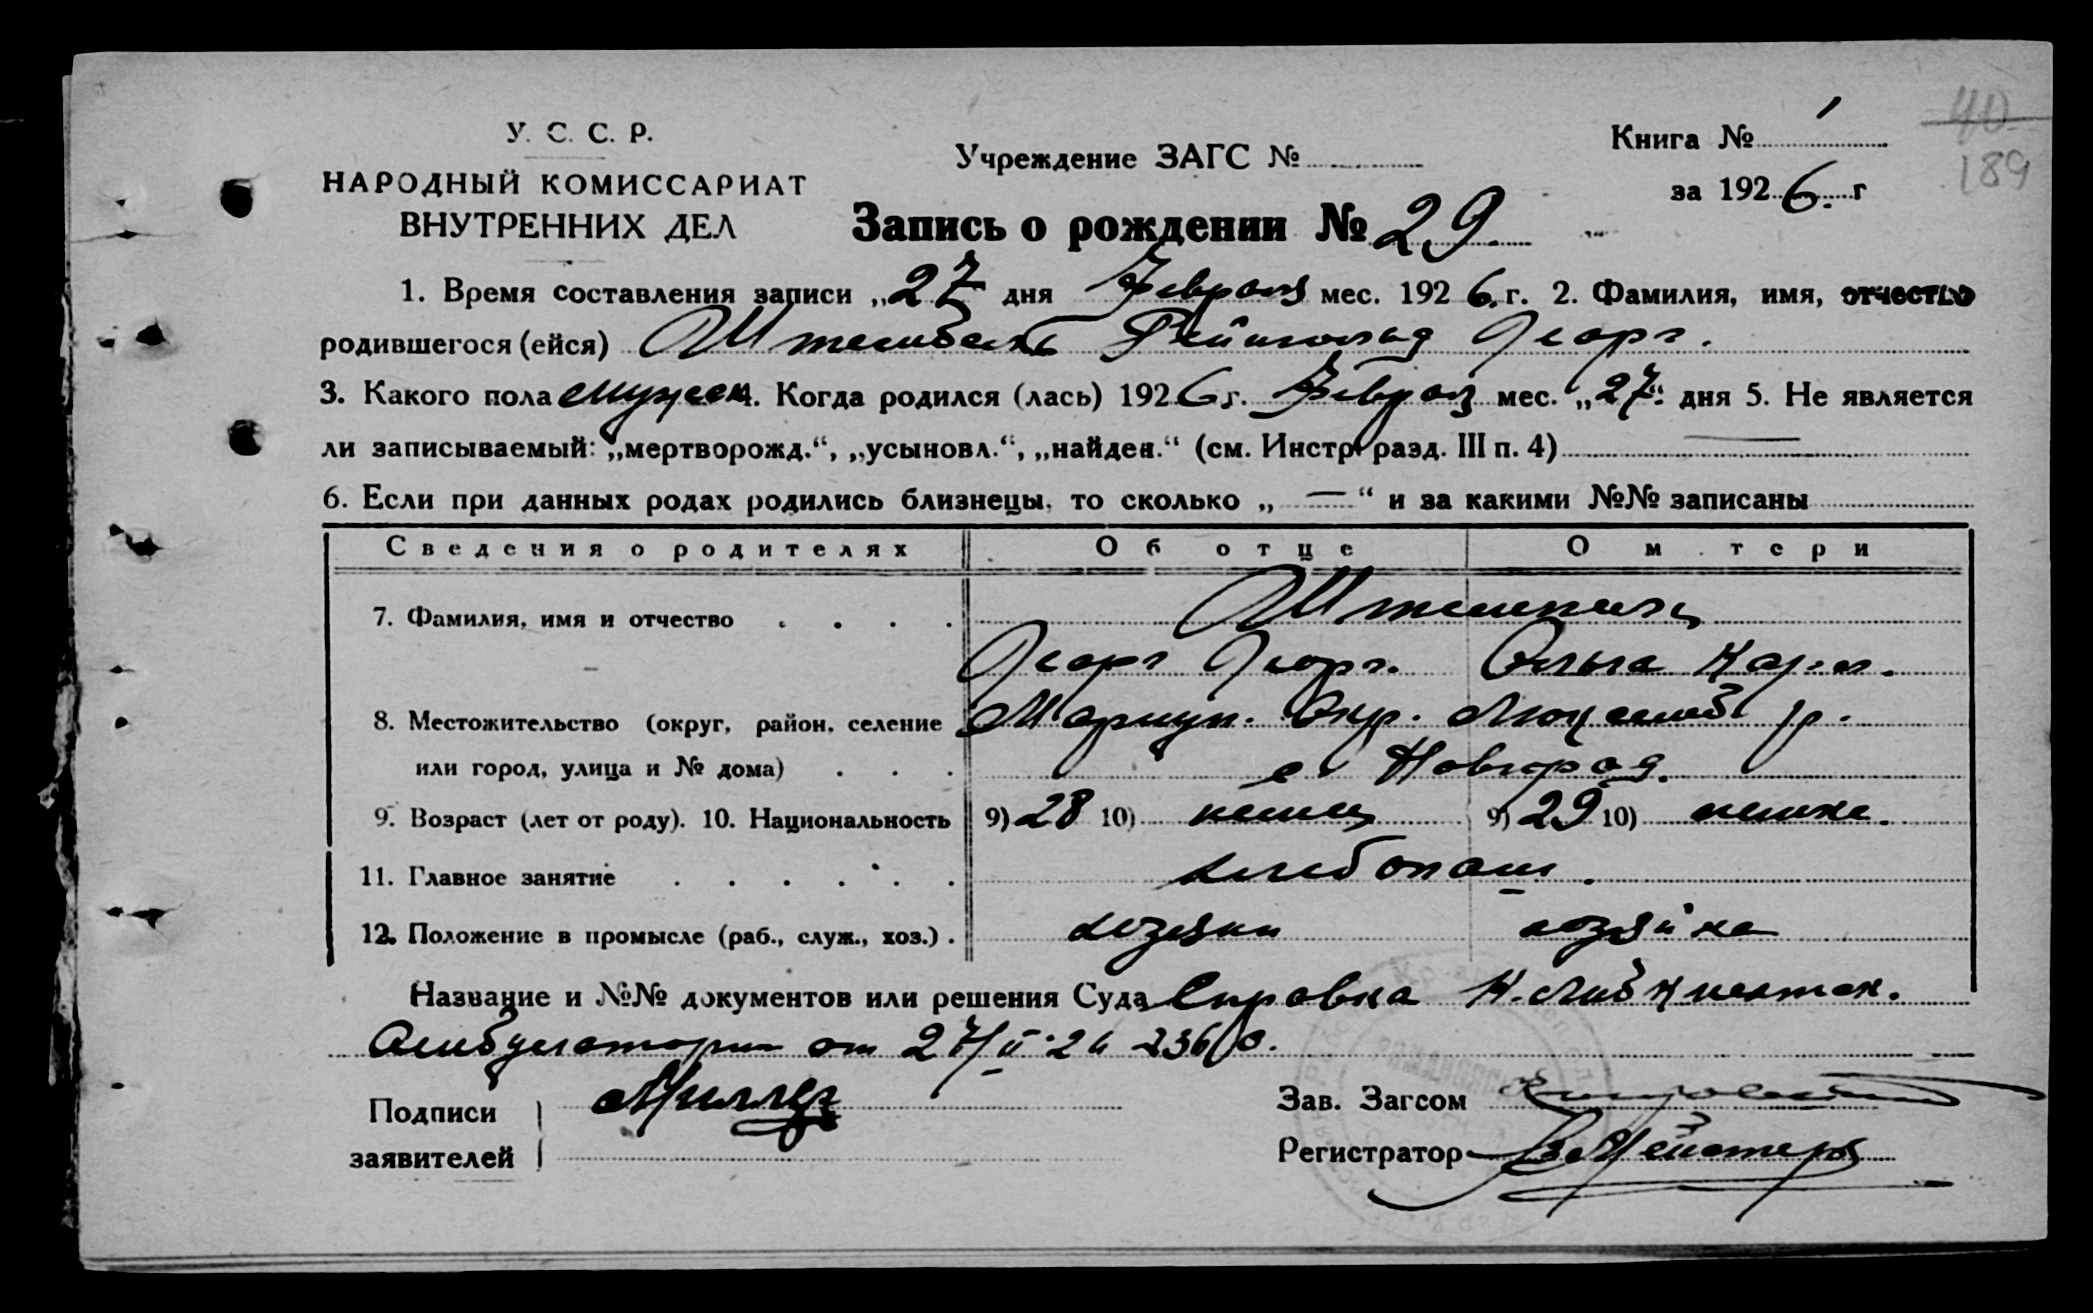 У. С. С. Р.
НАРОДНЫЙ КОМИССАРИАТ
ВНУТРЕННИХ ДЕЛ
Учреждение ЗАГС №
Книга № 1
за 1926 г
40
189
Запись о рождении № 29
1. Время составления записи „27 дня Февраля мес. 1926 г. 2. Фамилия, имя, отчество
родившегося (ейся) Рейнгольд Георг.
3. Какого пола мужск. Когда родился (лась) 1926 г. Февраля мес. „27“ дня 5. Не является
ли записываемый: „мертворожд.“, „усыновл.“, „найден.“ (см. Инстр. разд. III п. 4) —
6. Если при данных родах родились близнецы, то сколько „ — “ и за какими №№ записаны
Сведения о родителях Об отце О м тери
7. Фамилия, имя и отчество
Георг Георг. Ольга Карл.
8. Местожительство (округ, район, селение Мариуп. Окр. Люксемб р.
или город, улица и № дома) с. Новгород.
9. Возраст (лет от роду). 10. Национальность 9) 28 10) немец 9) 29 10) немка.
11. Главное занятие хлебопаш.
12. Положение в промысле (раб., служ., хоз.) хозяин хозяйка
Название и №№ документов или решения Суда Справка
Амбулатории от 27/II 26
Подписи Миллер
заявителей
Зав. Загсом
Регистратор